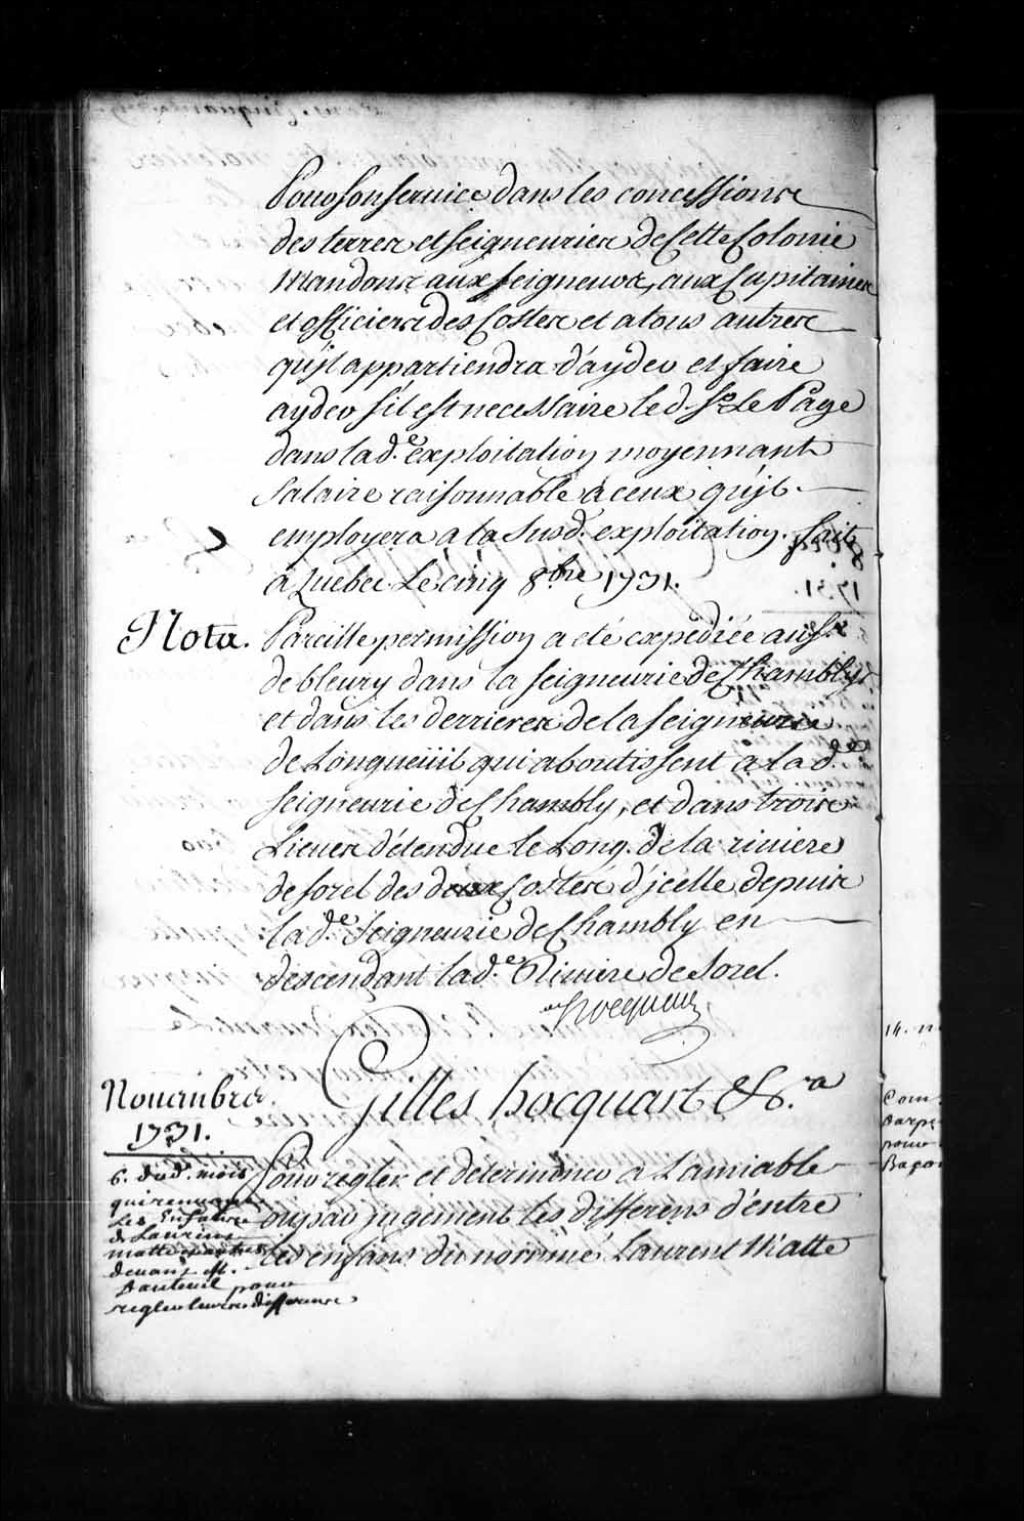 Pour son service dans les concessions
des terres et seigneuries de Cette Colonie
Mandons aux seigneurs, aux Capitaines
et officiers des Costes et a tous autres
qu'jl appartiendra d'ayder et faire
ayder s'il est necessaire led. Sr. Le Page
dans lad.e exploitation moyennant
salaire raisonnable a ceux qu'jl
employera a la susd. exploitation. fait
a Quebec Le cinq 8bre 1731.
Nota. Pareille permission a eté expediée au Sr.
de bleury dans la seigneurie de Chambly
et dans les derrieres de la seigneurie
de Longueüil qui aboutissent a la d.e
seigneurie de Chambly, et dans trois
Lieues d'étendue le Long de la riviere
de sorel des deux Costes d'jcelle depuis
la d.e Seigneurie de Chambly en
descendant lad.e Riviere de Sorel.
Hocquart
Novembre.
1731.
Gilles hocquart &c.a
6. dud. mois
qui renvoye
Les Enfans
de Laurent
matte
devant M.
Dauteuil pour
regler leurs differens
Pour regler et determiner a L'amiable
ou par jugement les differens d'entre
Les enfans du nommé Laurent Matte